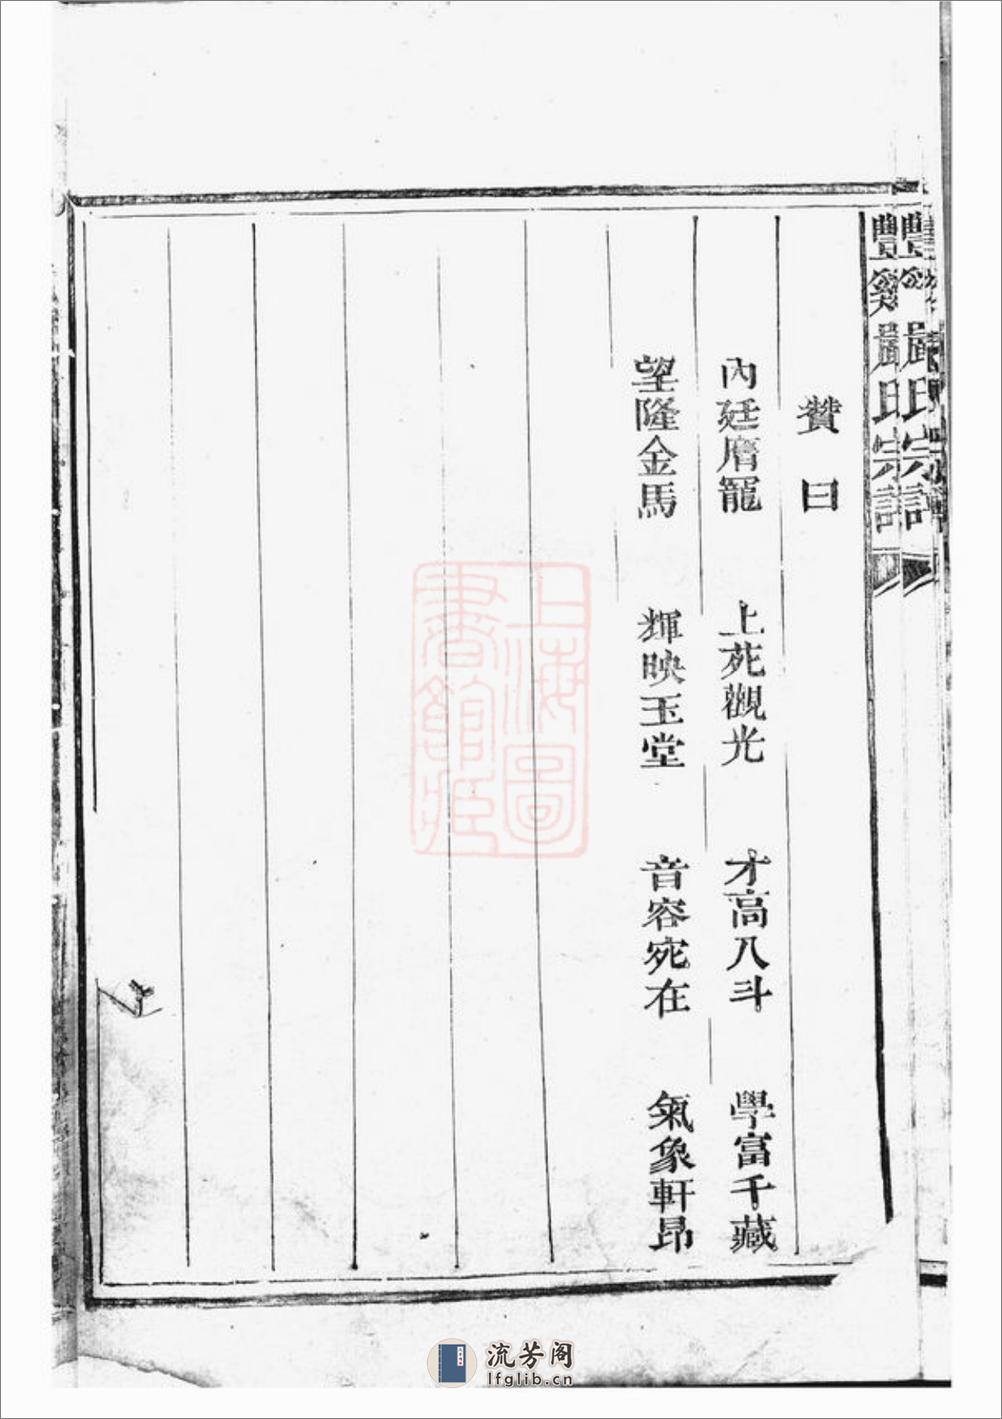 豐溪嚴氏宗譜
贊曰
內廷膺寵 上苑觀光 才高八斗 學富千藏
望隆金馬 輝映玉堂 音容宛在 氣象軒昂
上海圖書館藏
流芳阁
lfglib.cn